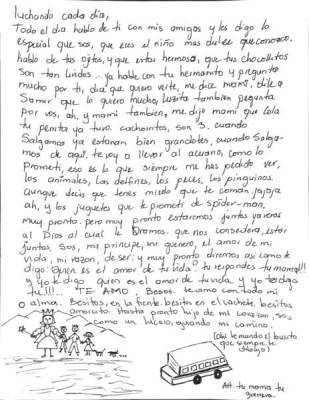 luchando cada día,
Todo el día hablo de ti con mis amigos y les digo lo
especial que sos, que eres el niño mas dulce que conozco.
hablo de tus ojitos, y que estas hermoso, que tus chocollitos
son tan lindos... ya hable con tu hermanito y pregunta
mucho por ti, dia que quiero verte, me dice mami, dile a
Samir que lo quiero mucho, luzita tambien pregunta
por vos, ah, y mami tambien, me dijo mami que Lola
tu perrita ya tuvo cachorritos, son 3, cuando
Salgamos ya estaran bien grandotes, cuando Salga-
mos de aquí, te voy a llevar al acuario, como lo
Prometí, eso es lo que siempre me has pedido ver,
los animales, los delfines, los peces, los pinguinos.
Aunque decis que tenes miedo que te coman, jajaja
ah, y los juguetes que te prometí de spider-man,
muy pronto. pero muy pronto estaremos juntos ya
al Dios al cual le oramos. que nos concedera, estar
juntos. Sos, mi principe, mi guerrero, el amor de mi
vida, mi razon, de ser: y muy pronto diremos asi como te
digo: Quien es el amor de tu vida? tu respondes tu mama!!!
y yo te digo quien es el amor de tu vida y yo te digo
tu!!!... TE AMO. Besos. te amo con todo mi
alma. Besitos, en la frente. besito en el cachete. besitos
amorcito. Hasta pronto hijo de mi corazon, sos
como un lucero, guiando mi camino.
(ahi le mando el busito
que siempre te
dibujo)
Att. tu mama tu
guerrera.